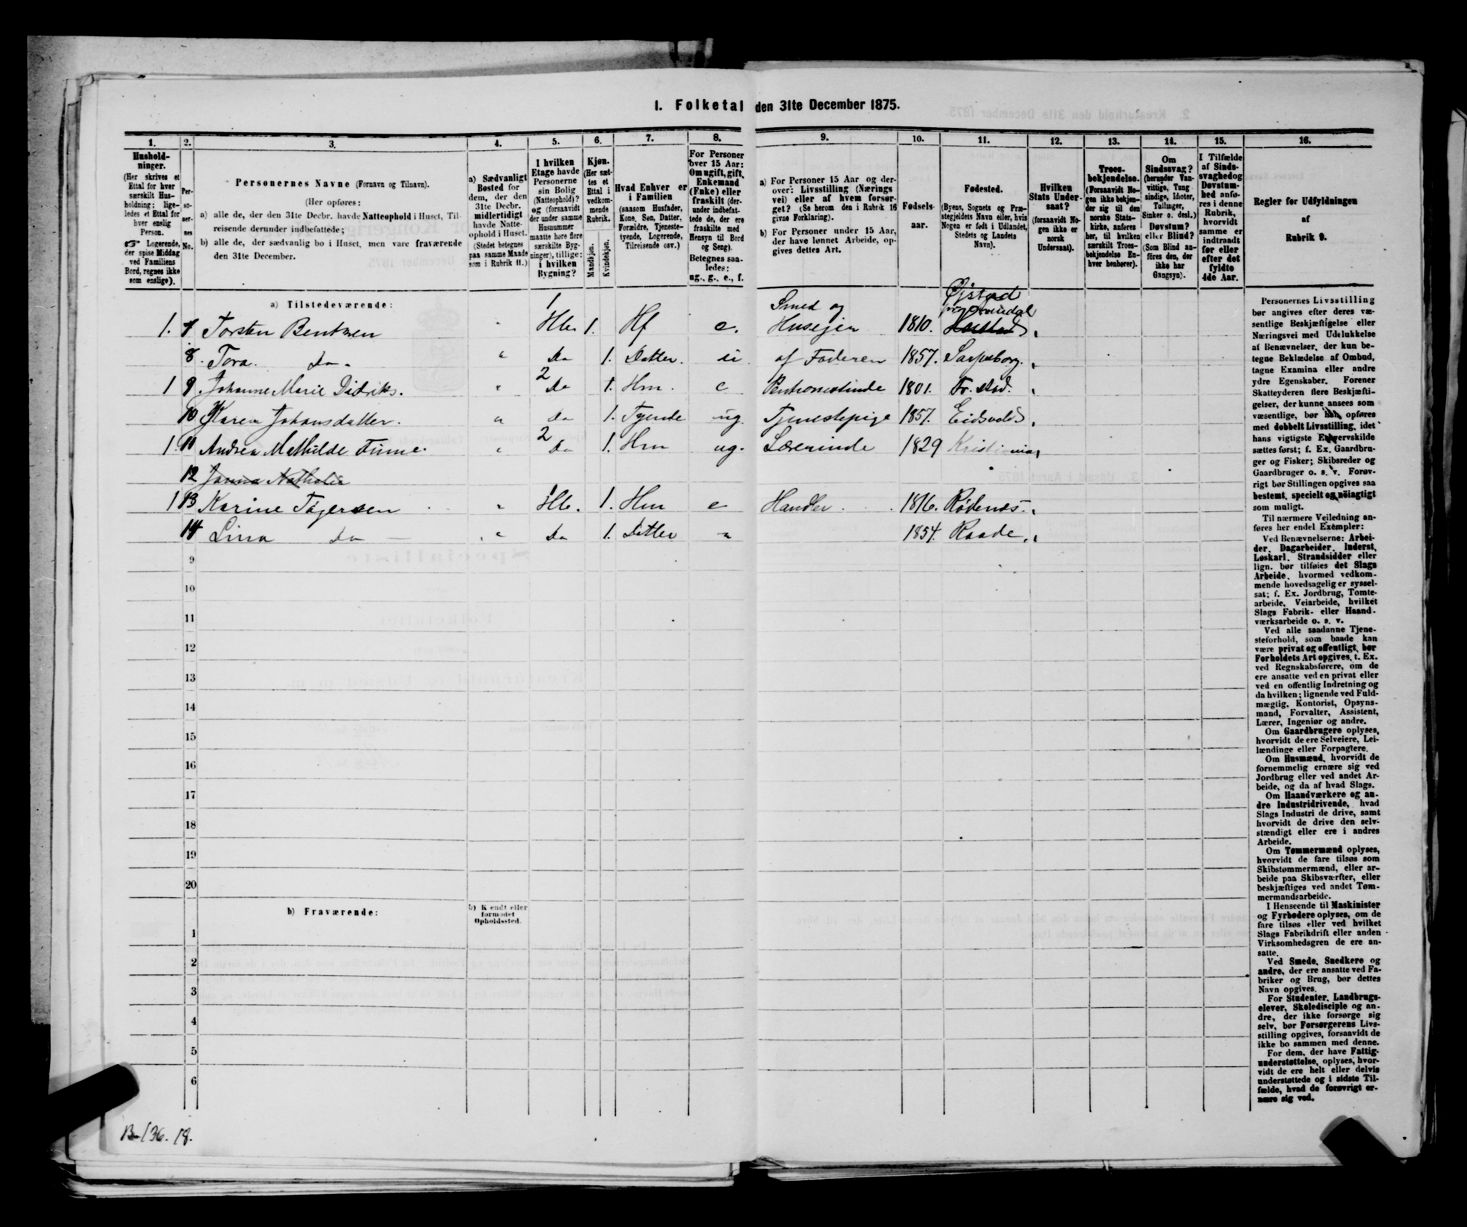 1. Folketal den 31te December 1875.
1. 2. 3. 4. 5. 6. 7. 8. 9. 10. 11. 12. 13. 14. 15. 16.
Hushold-
ninger.
(Her skrives et
Ettal for hver
særskilt Hus-
holdning; lige-
ledes et Ettal for
hver enslig
Person.
☞ Logerende,
der spise Middag
ved Familiens
Bord, regnes ikke
som enslige).
Per-
so-
ner-
nes
No.
Personernes Navne (Fornavn og Tilnavn).
(Her opføres:
a) alle de, der den 31te Decbr. havde Natteophold i Huset, Til-
reisende derunder indbefattede;
b) alle de, der sædvanlig bo i Huset, men vare fraværende
den 31te December.
a) Sædvanligt
Bosted for
dem, der den
31te Decbr.
midlertidigt
havde Natte-
ophold i Huset.
(Stedet betegnes
paa samme Maade
som i Rubrik 11.)
I hvilken
Etage havde
Personerne
sin Bolig
(Natteophold)?
og (forsaavidt
der under samme
Husnummer
maatte høre flere
særskilte Byg-
ninger), tillige:
i hvilken
Bygning?
Kjøn.
(Her sæt-
tes et
Ettal i
vedkom-
mende
Rubrik.
Mandkjøn.
Kvindekjøn.
Hvad Enhver er
i Familien
(saasom Husfader,
Kone, Søn, Datter,
Forældre, Tjeneste-
tyende, Logerende,
Tilreisende osv.)
For Personer
over 15 Aar:
Om ugift, gift,
Enkemand
(Enke) eller
fraskilt (der-
under indbefat-
tede de, der ere
fraskilte med
Hensyn til Bord
og Seng).
Betegnes saa-
ledes:
ug., g., e., f.
a) For Personer 15 Aar og der-
over: Livsstilling (Nærings
vei) eller af hvem forsør-
get? (Se herom den i Rubrik 16
givne Forklaring).
b) For Personer under 15 Aar,
der have lønnet Arbeide, op-
gives dettes Art.
Fødsels-
aar.
Fødested.
(Byens, Sognets og Præ-
stegjeldets Navn eller, hvis
Nogen er født i Udlandet,
Stedets og Landets
Navn).
Hvilken
Stats Under-
saat?
(forsaavidt No-
gen ikke er
norsk
Undersaat).
Troes-
bekjendelse.
(Forsaavidt No-
gen ikke bekjen-
der sig til den
norske Stats-
kirke, anføres
her, til hvilken
særskilt Troes-
bekjendelse En-
hver henhører).
Om
Sindssvag?
(herunder Van-
vittige, Tung
sindige, Idioter,
Tullinger,
Sinker o. desl.)
Døvstum?
eller Blind?
(Som Blind an-
føres den, der
ikke har
Gangsyn).
I Tilfælde
af Sinds-
svaghed og
Døvstum-
hed anfø-
res i denne
Rubrik,
hvorvidt
samme er
indtraadt
før eller
efter det
fyldte
4de Aar.
Regler for Udfyldningen
af
Rubrik 9.
a) Tilstedeværende:
1. 7 Torsten Bentzen 1 Hb. 1. Hf e. Smed og Huseier 1810. Øjestad
8. Tora do " Do 1. Datter. ug af Faderen 1857. Sarpsborg.
1 9 Johanne Marie Didriks. " 2 Do 1. Hm. e Pentionistinde 1801. Fr.stad.
10 Karen Johansdatter. " Do 1. Tyende ug. Tjenestepige 1857. Eidsvold
1. 11 Andrea Mathilde Finne. " 2 Do 1. Hm ug. Lærerinde 1829 Kristiania
12 Nathalie
1 13 Karine Tøgersen " Hb. 1. Hm e Handler 1816. Rødenæs
14 Lina do " Do 1. Datter " 1854. Raade.
9
10
11
12
13
14
15
16
17
18
19
20
b) Fraværende:
b) Kjendt eller
formodet
Opholdssted.
1
2
3
4
5
6
Personernes Livsstilling
bør angives efter deres væ-
sentlige Beskjæftigelse eller
Næringsvei med Udelukkelse
af Benævnelser, der kun be-
tegne Beklædelse af Ombud,
tagne Examina eller andre
ydre Egenskaber. Forener
Skatteyderen flere Beskjæfti-
gelser, der kunne ansees som
væsentlige, bør han opføres
med dobbelt Livsstilling, idet
hans vigtigste Erhvervskilde
sættes først; f. Ex. Gaardbru-
ger og Fisker; Skibsreder og
Gaardbruger o. s. v. Forøv-
rigt bør Stillingen opgives saa
bestemt, specielt og nøiagtigt
som muligt.
Til nærmere Veiledning an-
føres her endel Exempler:
Ved Benævnelserne: Arbei-
der, Dagarbeider, Inderst,
Løskarl, Strandsidder eller
lign. bør tilføies det Slags
Arbeide, hvormed vedkom-
mende hovedsagelig er syssel-
sat; f. Ex. Jordbrug, Tomte-
arbeide, Veiarbeide, hvilket
Slags Fabrik- eller Haand-
værksarbeide o. s. v.
Ved alle saadanne Tjene-
steforhold, som baade kan
være privat og offentligt, bør
Forholdets Art opgives, f. Ex.
ved Regnskabsførere, om de
ere ansatte ved en privat eller
ved en offentlig Indretning og
da hvilken; lignende ved Fuld-
mægtig, Kontorist, Opsyns-
mand, Forvalter, Assistent,
Lærer, Ingeniør og andre.
Om Gaardbrugere oplyses,
hvorvidt de ere Selveiere, Lei-
lændinge eller Forpagtere.
Om Husmænd, hvorvidt de
fornemmelig ernære sig ved
Jordbrug eller ved andet Ar-
beide, og da af hvad Slags.
Om Haandværkere og an-
dre Industridrivende, hvad
Slags Industri de drive, samt
hvorvidt de drive den selv-
stændigt eller ere i andres
Arbeide.
Om Tømmermænd oplyses,
hvorvidt de fare tilsøs som
Skibstømmermænd, eller ar-
beide paa Skibsværfter, eller
beskjæftiges ved andet Tøm-
mermandsarbeide.
I Henseende til Maskinister
og Fyrbødere oplyses, om de
fare tilsøs eller ved hvilket
Slags Fabrikdrift eller anden
Virksomhedsgren de ere an-
satte.
Ved Smede, Snedkere og
andre, der ere ansatte ved Fa-
briker og Brug, bør dettes
Navn opgives.
For Studenter, Landbrugs-
elever, Skoledisciple og an-
dre, der ikke forsørge sig
selv, bør Forsørgerens Livs-
stilling opgives, forsaavidt de
ikke bo sammen med denne.
For dem, der have Fattig-
understøttelse, oplyses, hvor-
vidt de ere helt eller delvis
understøttede og i sidste Til-
fælde, hvad de forøvrigt er-
nære sig ved.
B-136. 18.